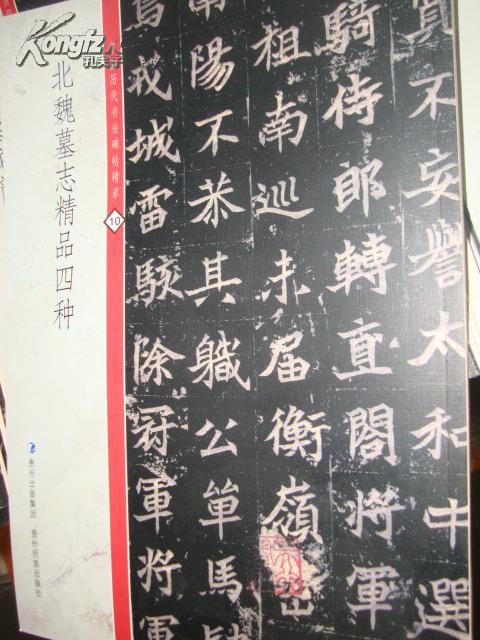 Kongfz.com
孔夫子
北魏墓志精品四种
历代书法碑帖精萃
10
贵州出版集团 贵州民族出版社
真不妄誉太和中選
騎侍郎轉直閤将軍
祖南巡未届衡嶺
南陽不恭其職公單馬
戎城雷駭除冠軍将軍